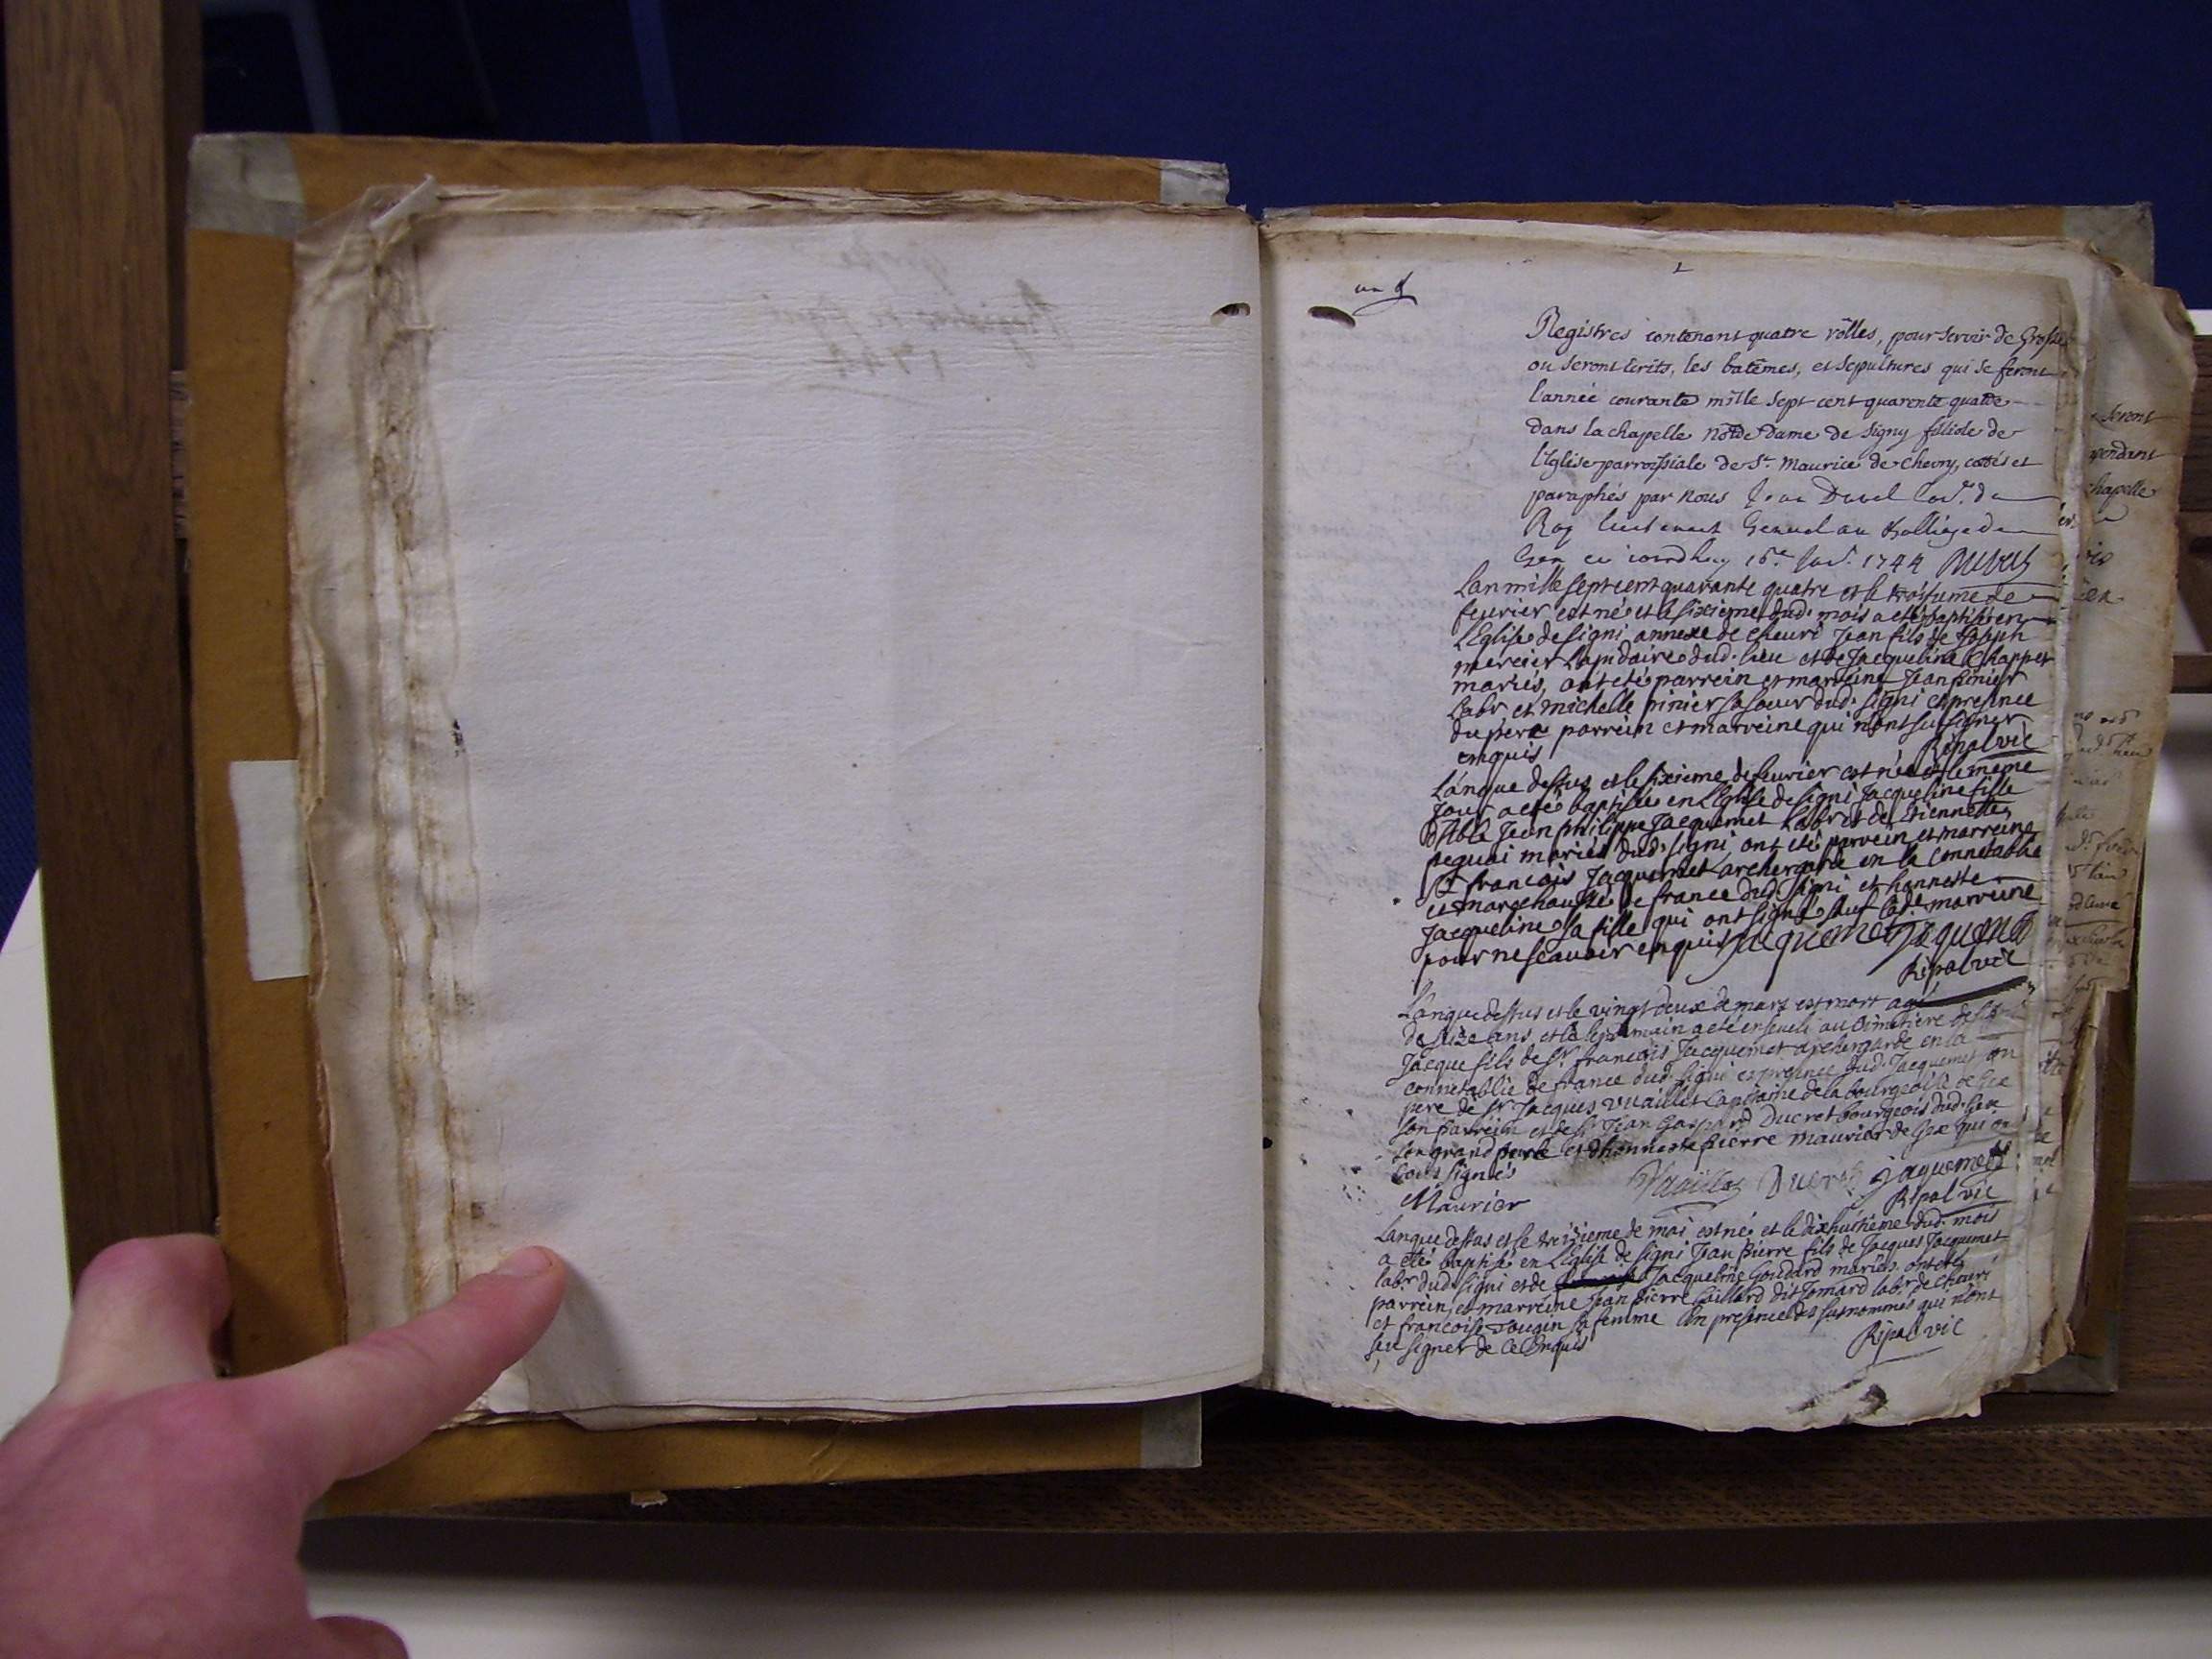 un
1
Registres contenant quatre rôlles, pour servir de Grosse
ou seront écrits, les batêmes, et sepultures qui se feront
l'année courante mille sept cent quarente quatre
dans la chapelle notre Dame de Signy filiole de
l'Eglise parroissiale de St. Maurice de Chevry, cottés et
paraphés par nous Jean Duvel de
Roy lieutenant General au Balliage de
Gex ce jourdhuy 16e. Janv. 1744
Lan mille sept cent quarante quatre et le troisieme de
feurier est né et le sixieme dud. mois a eté baptisé en
L'Eglise de signi annexe de cheuri Jean fils de Joseph
mercier Lapidaire dud. lieu et de Jacqueline Chappet
mariés, ont eté parrein et marreine Jean pinier
Labr et michelle pinier sa soeur dud. signi en presence
du pere parrein et marreine qui n'ont su signer
enquis Ripal vic
L'an que dessus et le sixieme de feurier est née et le meme
jour a eté baptisée en L'Eglise de signi Jacqueline fille
Jean philippe Jacquemet Labr et de Etiennette
peguai mariés dud. signi ont eté parrein et marreine
Sr francois Jacquemet archer garde en la connetablie
et marechaussée de france dud. signi et honneste
Jacqueline sa fille qui ont signé sauf lad. marreine
pour ne scauoir enquis Jaquemet Jaquemet
Ripal vic
L'an que dessus et le vingt deux de mars est mort agé
de seize ans et le lendemain a eté enseueli au Cimetiere de signi
Jacque fils de Sr francois Jacquemet archer garde en la
connetablie de france dud. signi en presence dud. Jacquemet son
pere de Sr Jacques vuaillet Capitaine de la bourgeoisie de Gex
son parrein et de Sr Jean Gaspard Ducret bourgeois dud. Gex
son grand et d'honneste pierre maurier de Gex qui on
tous signés
Maurier Vuaillet Ducret jaquemet
Ripal vic
Lan que dessus et le treizieme de mai est né et le dix huitieme dud. mois
a eté baptisé en L'Eglise de signi Jean Pierre fils de Jacques Jacquemet
labr. dud. signi et de Jacqueline Goudard mariés. ont eté
parrein, et marreine Jean pierre Caillard dit Jomard labr. de cheuri
et francoise sa femme En presence des susnommés qui n'ont
seu signer de ce Enquis
Ripal vic
seront
pendant
chapelle